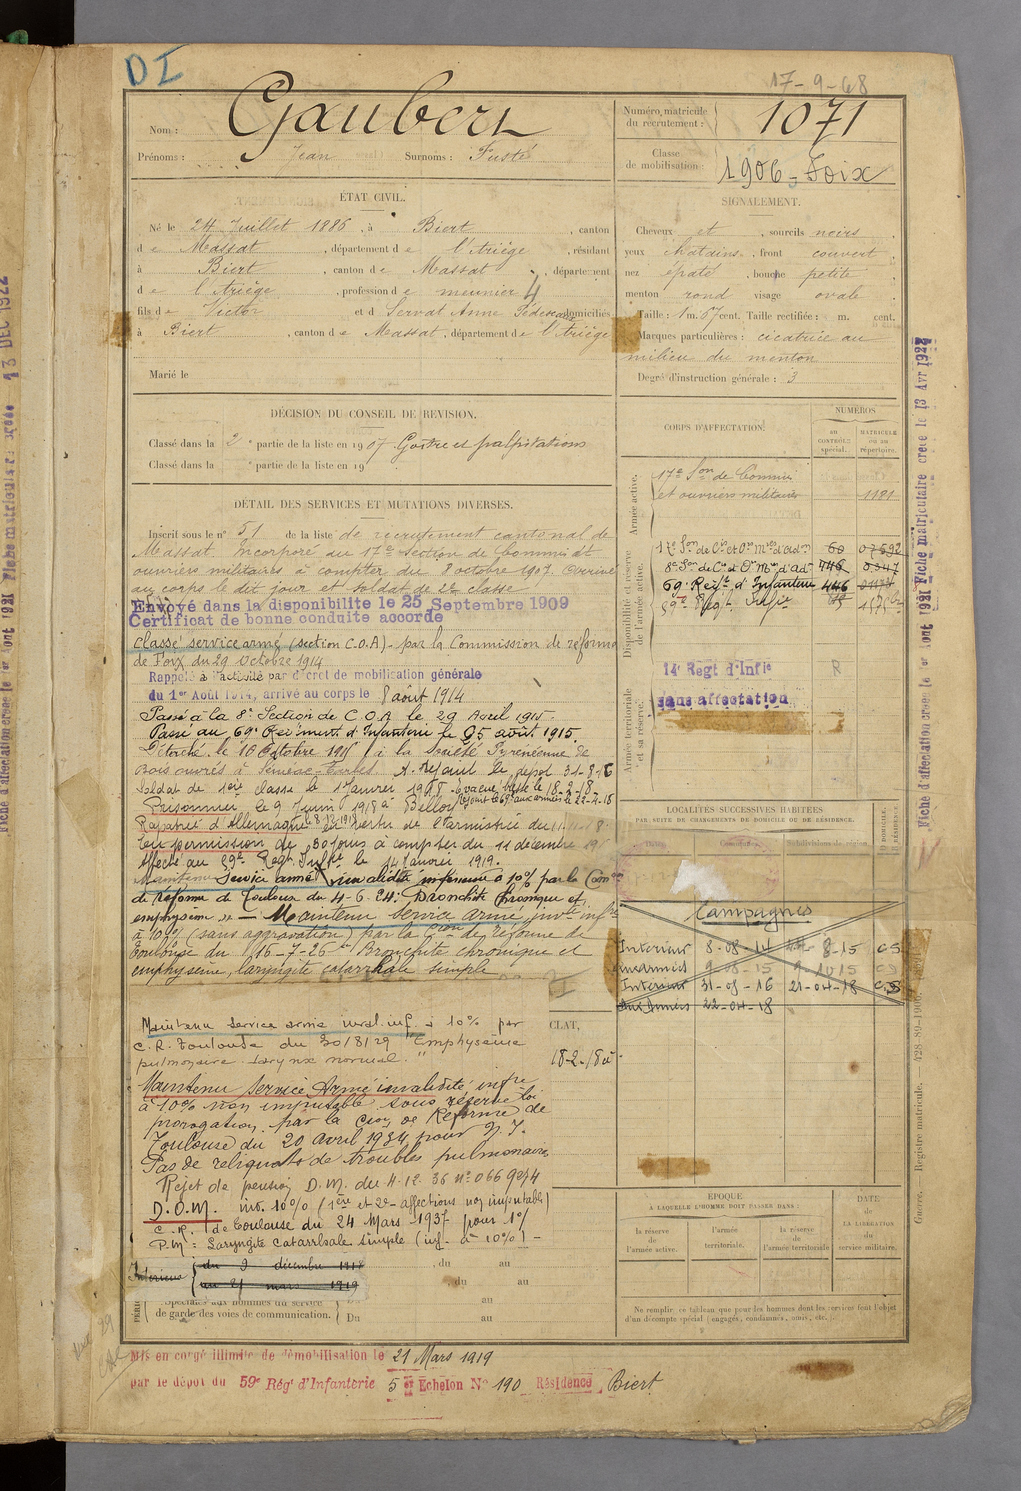 DI
17-9-68
Nom : Gaubert
Prénoms : Jean Surnoms : Fusté
Numéro matricule du recrutement : 1071
Classe de mobilisation : 1906 - Foix
ÉTAT CIVIL.
Né le 24 Juillet 1886, à Biert, canton
de Massat, département de l'Ariège, résidant
à Biert, canton de Massat, département
de l'Ariège, profession de meunier 4
fils de Victor et d Servat Anne domiciliés
à Biert, canton de Massat, département de l'Ariège
Marié le
SIGNALEMENT.
Cheveux et, sourcils noirs
yeux chatains, front couvert
nez épaté, bouche petite
menton rond visage ovale
Taille : 1 m. 67 cent. Taille rectifiée : m. cent.
Marques particulières : cicatrice au
milieu du menton
Degré d'instruction générale : 3
DÉCISION DU CONSEIL DE RÉVISION.
Classé dans la 2e partie de la liste en 1907. Goitre et palpitations
Classé dans la e partie de la liste en 19
DÉTAIL DES SERVICES ET MUTATIONS DIVERSES.
Inscrit sous le n° 51 de la liste de recrutement cantonal de
Massat. Incorporé au 17e Section de Commis et
ouvriers militaires à compter du 8 octobre 1907. Arrivé
au corps le dit jour et soldat de 2e classe
Envoyé dans la disponibilité le 25 Septembre 1909
Certificat de bonne conduite accordé
Classé service armé (section C.O.A) par la Commission de réforme
de Foix du 29 Octobre 1914
Rappelé à l'activité par décret de mobilisation générale
du 1er Août 1914, arrivé au corps le 8 août 1914
Passé à la 8e Section de C.O.A. le 29 Avril 1915.
Passé au 69e Régiment d'Infanterie le 25 août 1915.
Détaché le 16 Octobre 1915 à la Société Pyrénéenne de
Bois ouvrés à Séméac-Tarbes. A rejoint le dépôt 31-8-16
Soldat de 1ère classe le 1 Janvier 1918. Evacué blessé le 18-2-18
Rejoint le 69e aux armées le 22-4-18
Prisonnier le 9 Juin 1918 à Belloy
Rapatrié d'Allemagne le 8.12.1918 en vertu de l'armistice du 11-11-18.
En permission de 30 jours à compter du 11 décembre 19
Affecté au 59e Régt Infie le 14 Janvier 1919.
Maintenu Service armé invalidité inférieure à 10% par la Comon
de réforme de Toulouse du 4-6-24 : Bronchite chronique et
emphysème — Maintenu service armé, invté infre
à 10% (sans aggravation) par la Con de réforme de
Toulouse du 16-7-26 " Bronchite chronique et
emphysème, laryngite catarrhale simple
Maintenu service armé inval. inf. à 10% par
C.R. Toulouse du 30/8/29 "Emphysème
pulmonaire larynx normal."
Maintenu Service Armé invalidité infre
à 10% non imputable sous réserve loi
prorogation par la Con de Réforme de
Toulouse du 20 avril 1934 pour
Pas de reliquats de troubles pulmonaires
Rejet de pension D.M. du 4-12-36 n° 0669274
D.O.M. inv. 10% (1ère et 2e affections non imputable)
C.R. de Toulouse du 24 Mars 1937 pour 1°/
P.M : Laryngite catarrhale simple (inf. à 10%) -
Intérieur du 9 décembre 1918, du au
au 21 mars 1919, du au
Spéciales aux hommes du service Du au
de garde des voies de communication. Du au
Mis en congé illimité de démobilisation le 21 Mars 1919
par le dépôt du 59e Rég' d'Infanterie 5e Echelon N° 190 Résidence Biert
CORPS D'AFFECTATION.
NUMÉROS
AU CONTRÔLE spécial.
MATRICULE OU AU répertoire.
Armée active.
17e Son de Commis
et ouvriers militaires 1121
Disponibilité et réserve de l'armée active.
17e Son de Cis et Ors Mres d'Adon 60 07692
8e Son de Cis et Ors Mres d'Adon 446
69e Régt d'Infanterie 446
59e Régt Infie
Armée territoriale et sa réserve.
14e Regt d'Infie R
sans affectation
LOCALITÉS SUCCESSIVES HABITÉES
PAR SUITE DE CHANGEMENTS DE DOMICILE OU DE RÉSIDENCE.
Dates. Communes. Subdivisions de région. DOMICILE RÉSIDENCE
Campagnes
Intérieur 8-08-14 8-15 C.S
aux armées 9-08-15 9-10-15 C.D
Intérieur 31-08-16 21-04-18 C.S
Aux Armées 22-04-18
CLAT,
18-2-18
ÉPOQUE
À LAQUELLE L'HOMME DOIT PASSER DANS :
la réserve de l'armée active.
l'armée territoriale.
la réserve de l'armée territoriale
DATE DE LA LIBÉRATION du service militaire.
Ne remplir ce tableau que pour les hommes dont les services font l'objet
d'un décompte spécial (engagés, condamnés, omis, etc.).
Guerre. — Registre matricule. — 428-89-1906.
Fiche d'affectation créée le 1er Aout 1921 Fiche matriculaire créée le 13 Avr 1922
Fiche d'affectation créée le 1er Aout 1921 Fiche matriculaire créée 13 DEC 1922